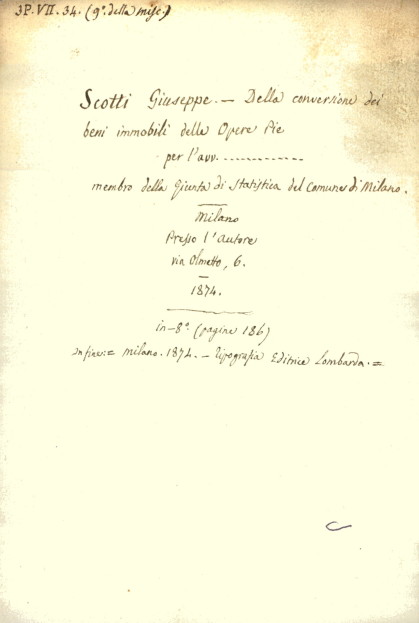 3P. VII. 34. (9º della misc.)
Scotti Giuseppe. — Della conversione dei
beni immobili delle Opere Pie
per l'avv. .............
membro della Giunta di Statistica del Comune di Milano.
Milano
Presso l'autore
via Olmetto, 6.
1874.
in-8º. (pagine 186)
In fine: = Milano. 1874. — Tipografia Editrice Lombarda. =